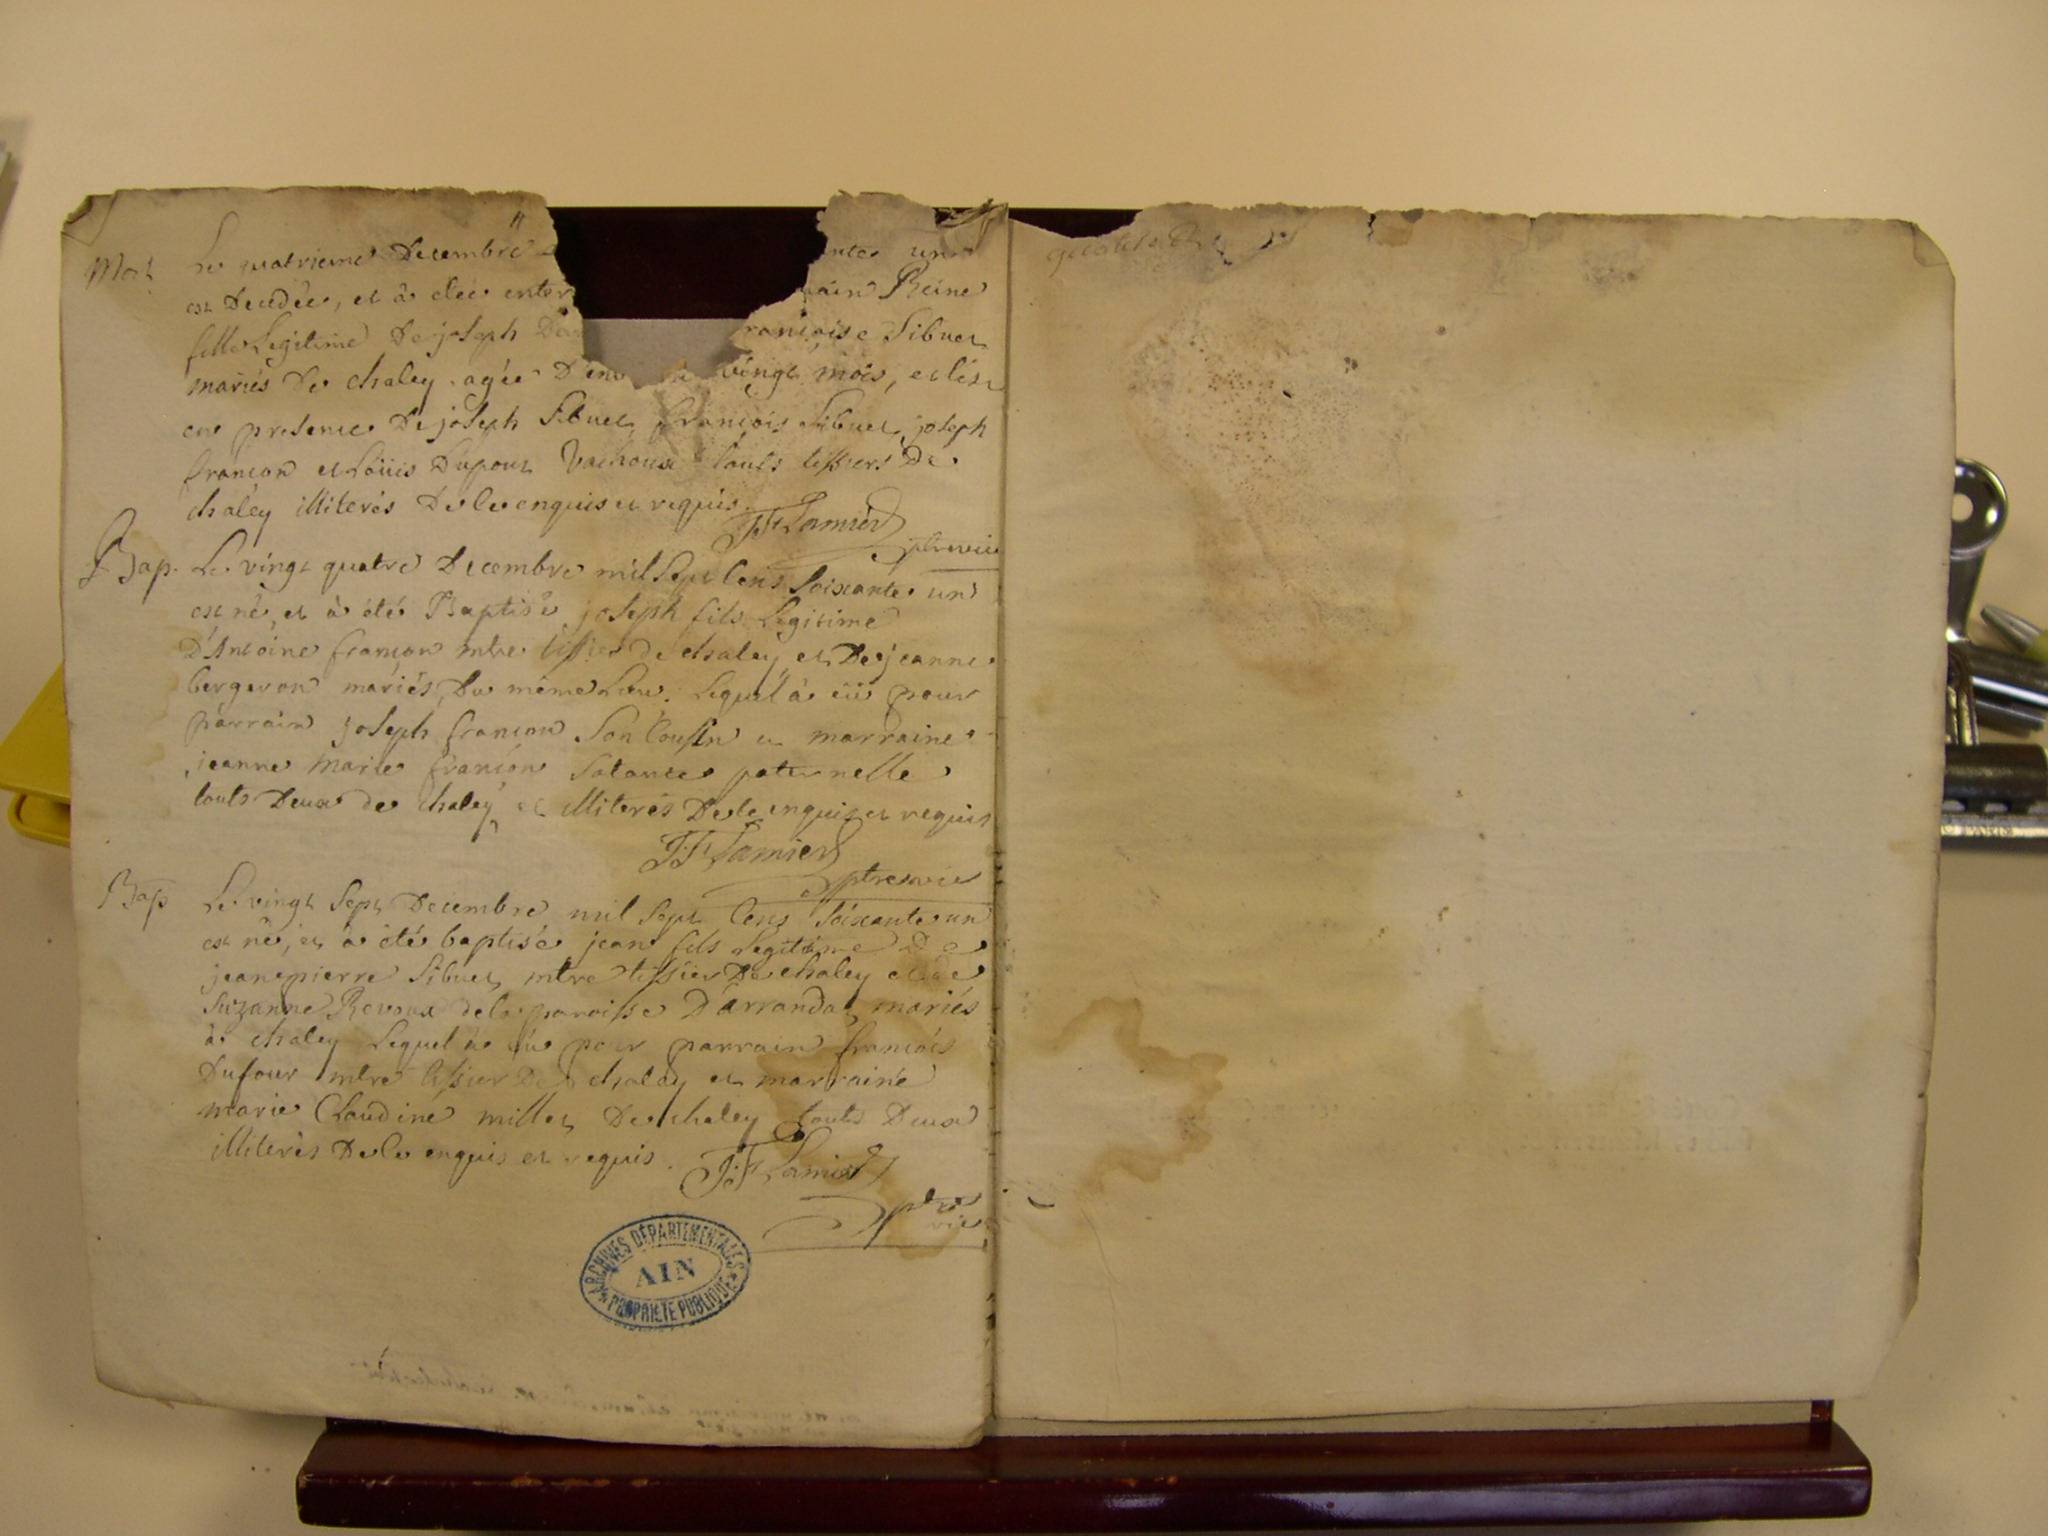 Mort
Le quatrieme Decembre un
est Decedée, et à etée enter Reine
fille Legitime De joseph françoise Sibuet
mariés De chaley agée D'env vingt mois, et l'est
en presence De joseph Sibuet, françois Sibuet, joseph
françon et Loüis Dupont touts tissiers De
chaley illiterés De le enquis et requis.
J.F. Lamier
ptre vic
Bap. Le vingt quatre Decembre mil Sept Cens Soixante un
est né, et à été Baptisé joseph fils Legitime
D'Antoine françon mtre tissier de chaley et De jeanne
bergeron mariés Du même Lieu. Lequel à eü pour
parrain joseph françon Son Cousin et marraine
jeanne Marie françon Satante paternelle
touts Deux de chaley et illiterés De le enquis et requis
J.F. Lamier
ptre vic
Bap Le vingt Sept Decembre mil Sept Cens Soixante un
est né, et à été baptisé jean fils Legitime De
jeanpierre Sibuet mtre tissier De chaley et de
Suzanne Revoux de la paroisse D'arrandas mariés
à chaley Lequel à eü pour parrain françois
Dufour mtre tissier De chaley et marraine
marie Claudine millet De chaley touts Deux
illiterés De le enquis et requis.
J.F. Lamier
ptre
vic
ARCHIVES DÉPARTEMENTALES
AIN
PROPRIETE PUBLIQUE